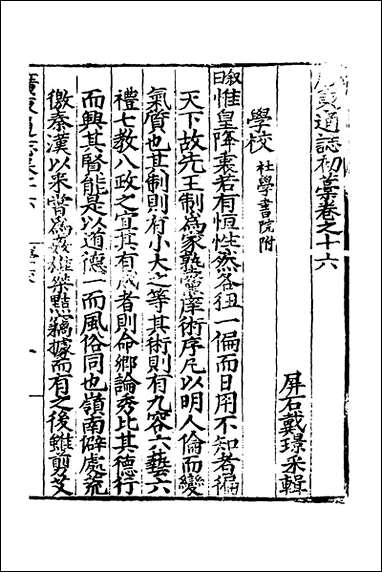 通誌初藁卷之十六
屏石戴璟采輯
學校 社學書院附
叙曰惟皇降衷若有恒性然各狃一偏而日用不知者徧
天下故先王制為家塾黨庠術序凡以明人倫而變
氣質也其制則有小大之等其術則有九容六藝六
禮七教八政之宜其有成者則命鄉論秀比其德行
而興其賢能是以道德一而風俗同也嶺南僻處荒
徼秦漢以來嘗為奸雄桀黠竊據而有之後雖剪芟